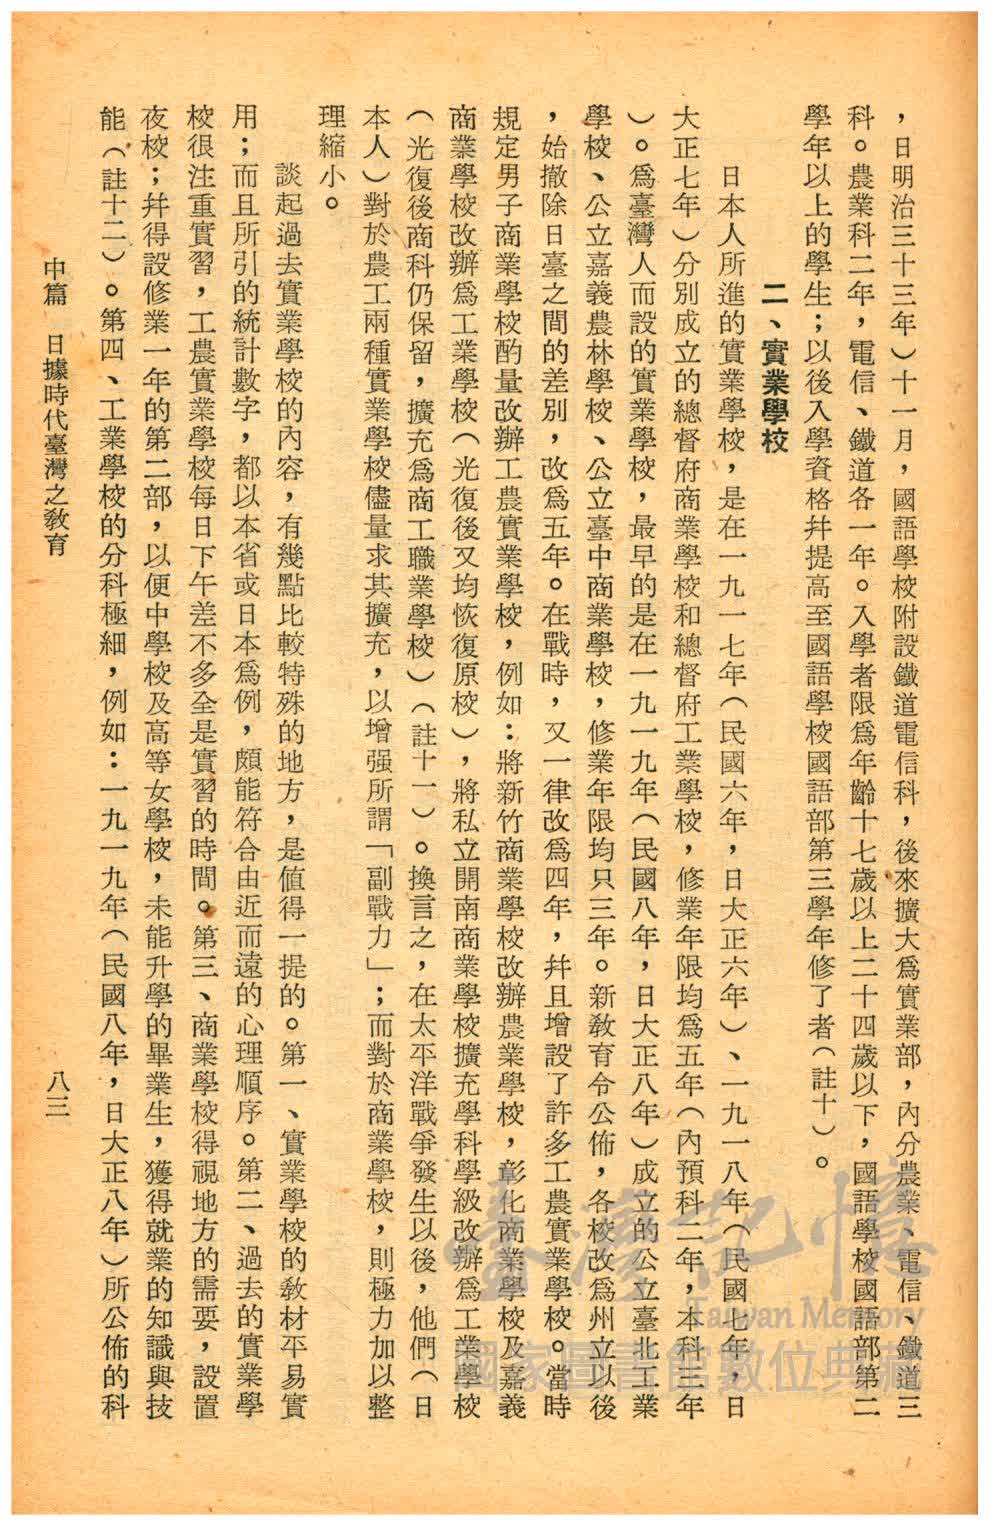 ，日明治三十三年）十一月，國語學校附設鐵道電信科，後來擴大爲實業部，內分農業、電信、鐵道三
科。農業科二年，電信、鐵道各一年。入學者限爲年齡十七歲以上二十四歲以下，國語學校國語部第二
學年以上的學生；以後入學資格幷提高至國語學校國語部第三學年修了者（註十）。
二、實業學校
日本人所進的實業學校，是在一九一七年（民國六年，日大正六年）、一九一八年（民國七年，日
大正七年）分別成立的總督府商業學校和總督府工業學校，修業年限均爲五年（內預科二年，本科三年
）。爲臺灣人而設的實業學校，最早的是在一九一九年（民國八年，日大正八年）成立的公立臺北工業
學校、公立嘉義農林學校、公立臺中商業學校，修業年限均只三年。新敎育令公佈，各校改爲州立以後
，始撤除日臺之間的差別，改爲五年。在戰時，又一律改爲四年，幷且增設了許多工農實業學校。當時
規定男子商業學校酌量改辦工農實業學校，例如：將新竹商業學校改辦農業學校，彰化商業學校及嘉義
商業學校改辦爲工業學校（光復後又均恢復原校），將私立開南商業學校擴充學科學級改辦爲工業學校
（光復後商科仍保留，擴充爲商工職業學校）（註十一）。換言之，在太平洋戰爭發生以後，他們（日
本人）對於農工兩種實業學校儘量求其擴充，以增强所謂「副戰力」；而對於商業學校，則極力加以整
理縮小。
談起過去實業學校的內容，有幾點比較特殊的地方，是值得一提的。第一、實業學校的敎材平易實
用；而且所引的統計數字，都以本省或日本爲例，頗能符合由近而遠的心理順序。第二、過去的實業學
校很注重實習，工農實業學校每日下午差不多全是實習的時間。第三、商業學校得視地方的需要，設置
夜校；幷得設修業一年的第二部，以便中學校及高等女學校，未能升學的畢業生，獲得就業的知識與技
能（註十二）。第四、工業學校的分科極細，例如：一九一九年（民國八年，日大正八年）所公佈的科
中篇　日據時代臺灣之敎育
八三
臺灣記憶
Taiwan Memory
國家圖書館數位典藏